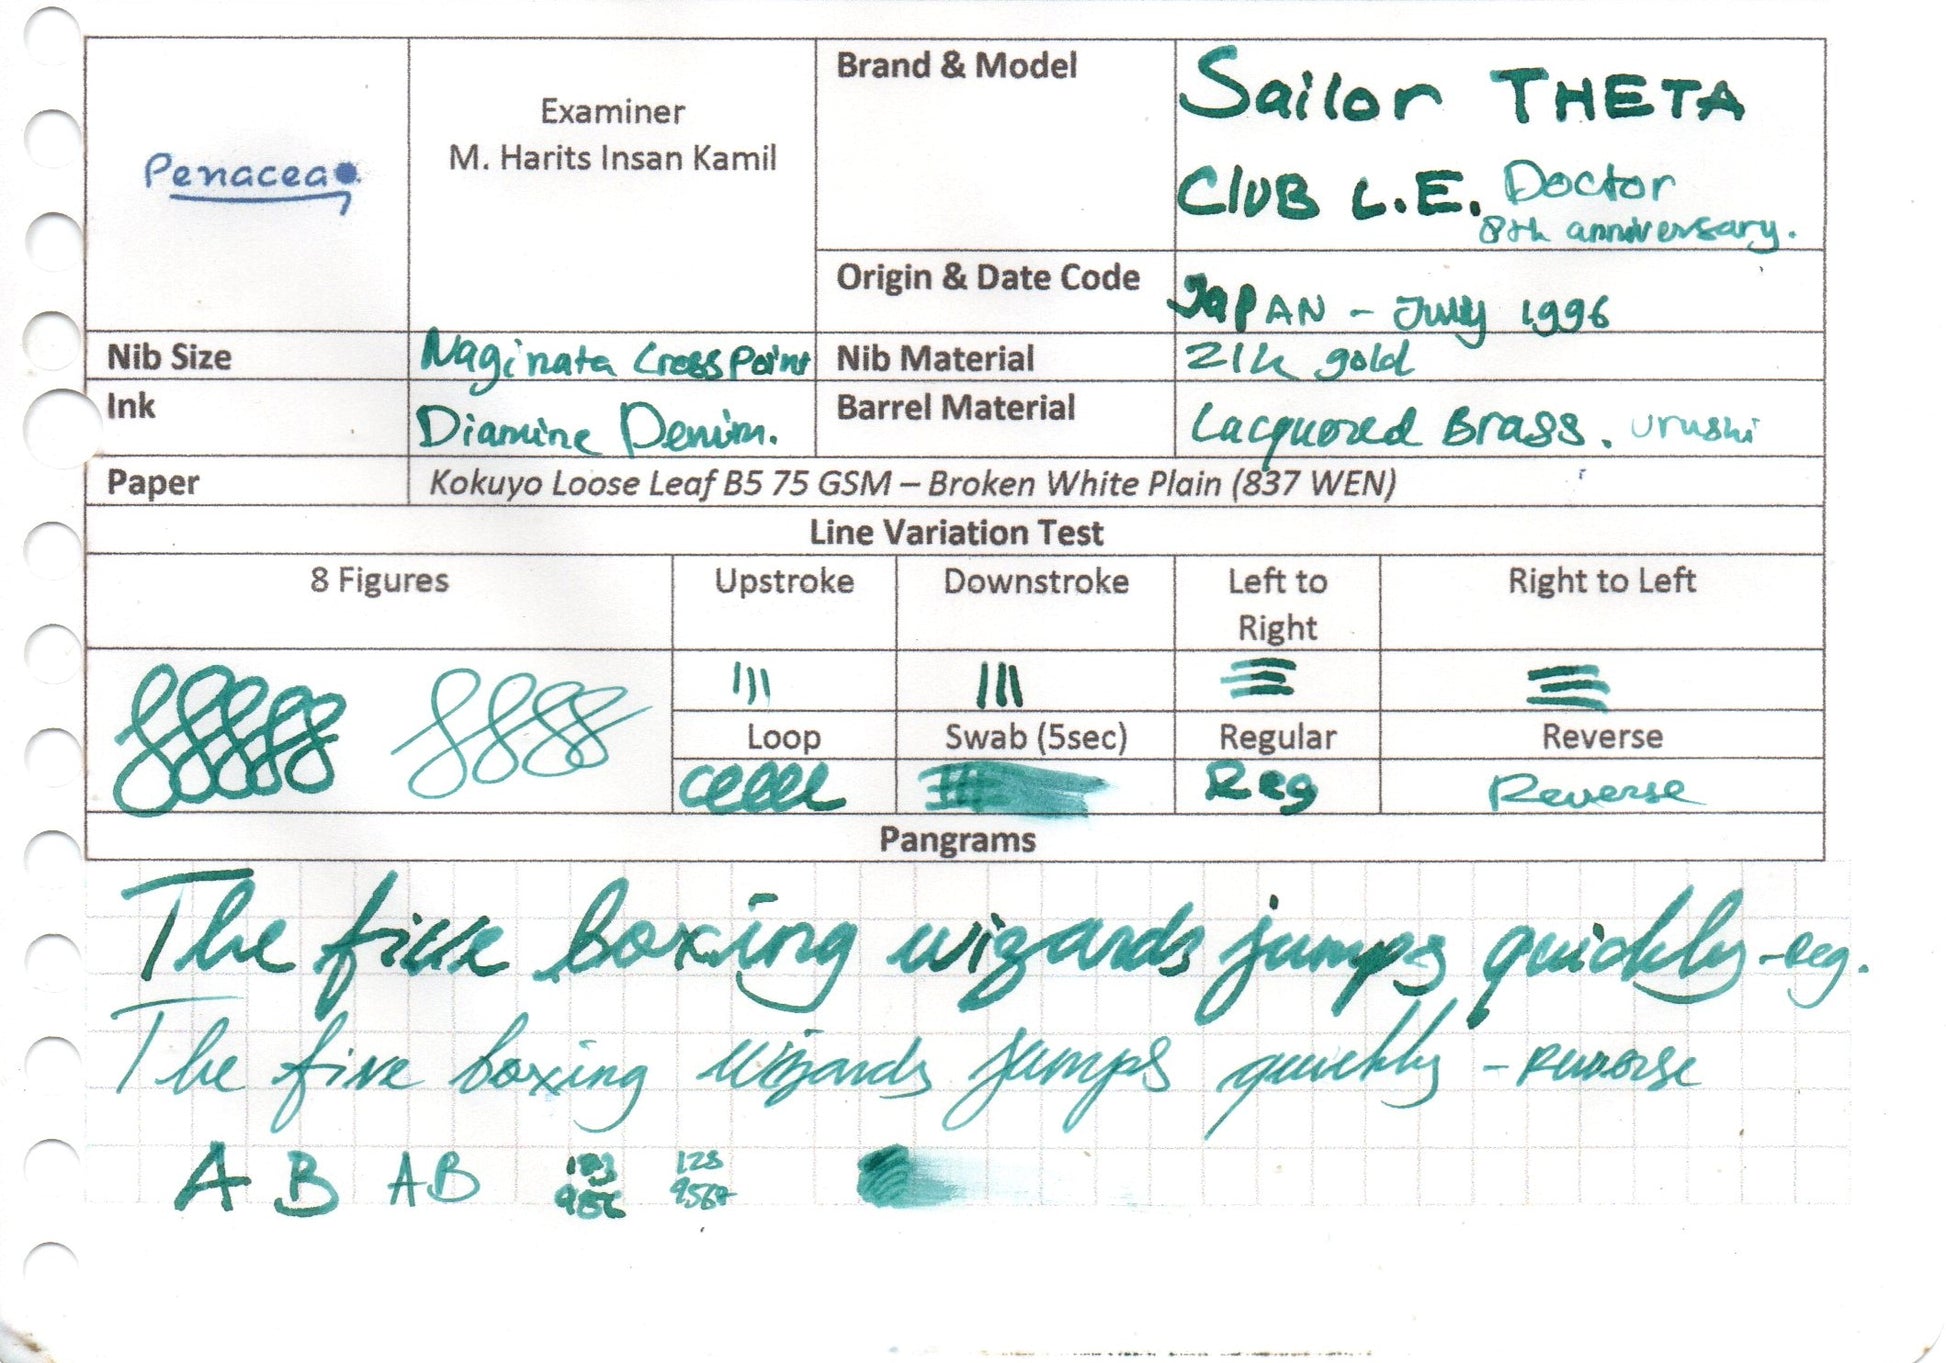 Penacea
Examiner
M. Harits Insan Kamil
Brand & Model
Sailor THETA
CluB L.E. Doctor
8th anniversary.
Origin & Date Code
JAPAN - July 1996
Nib Size
Naginata Cross Point
Nib Material
21k gold
Ink
Diamine Denim.
Barrel Material
Lacquored Brass. urushi
Paper
Kokuyo Loose Leaf B5 75 GSM – Broken White Plain (837 WEN)
Line Variation Test
8 Figures
Upstroke
Downstroke
Left to
Right
Right to Left
Loop
Swab (5sec)
Regular
Reverse
Reg
Reverse
Pangrams
The five boxing wizards jumps quickly - reg.
The five boxing wizards jumps quickly - reverse
A B A B
123 123